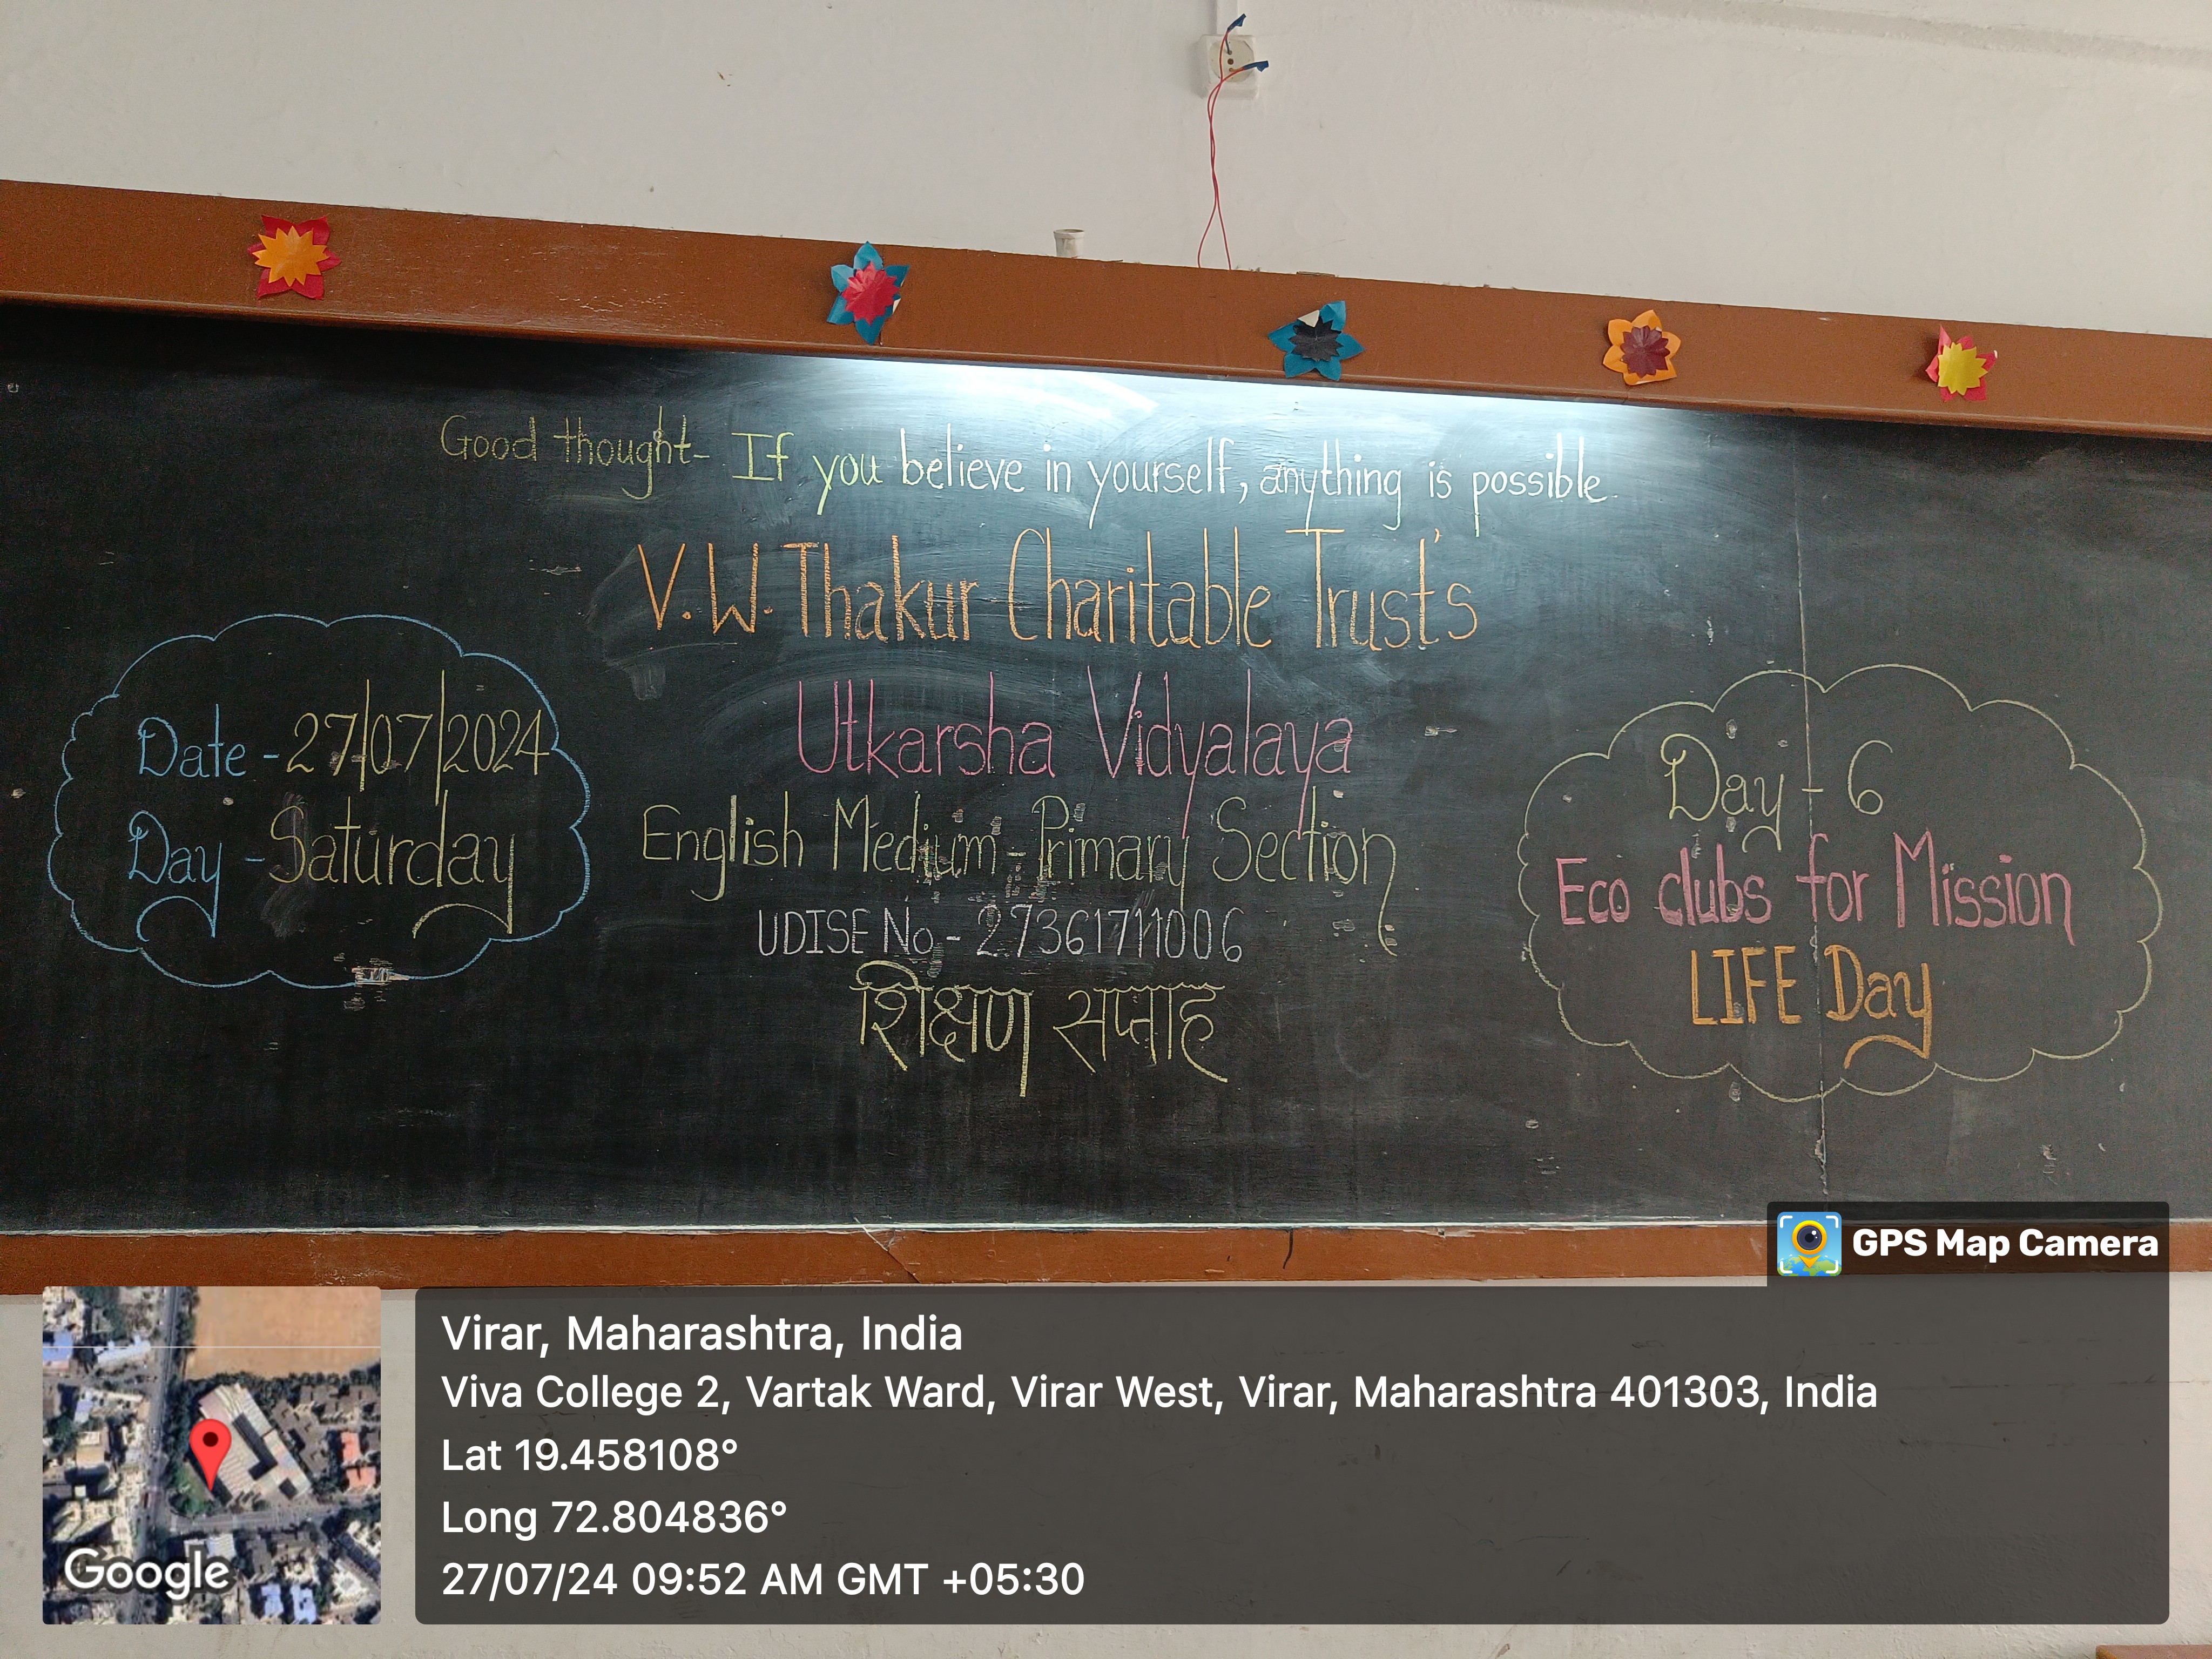 Good thought- If you believe in yourself, anything is possible.
V.W. Thakur Charitable Trust's
Utkarsha Vidyalaya
English Medium - Primary Section
UDISE No - 27361711006
शिक्षण सप्ताह
Date - 27/07/2024
Day - Saturday
Day - 6
Eco clubs for Mission
LIFE Day
GPS Map Camera
Virar, Maharashtra, India
Viva College 2, Vartak Ward, Virar West, Virar, Maharashtra 401303, India
Lat 19.458108°
Long 72.804836°
27/07/24 09:52 AM GMT +05:30
Google